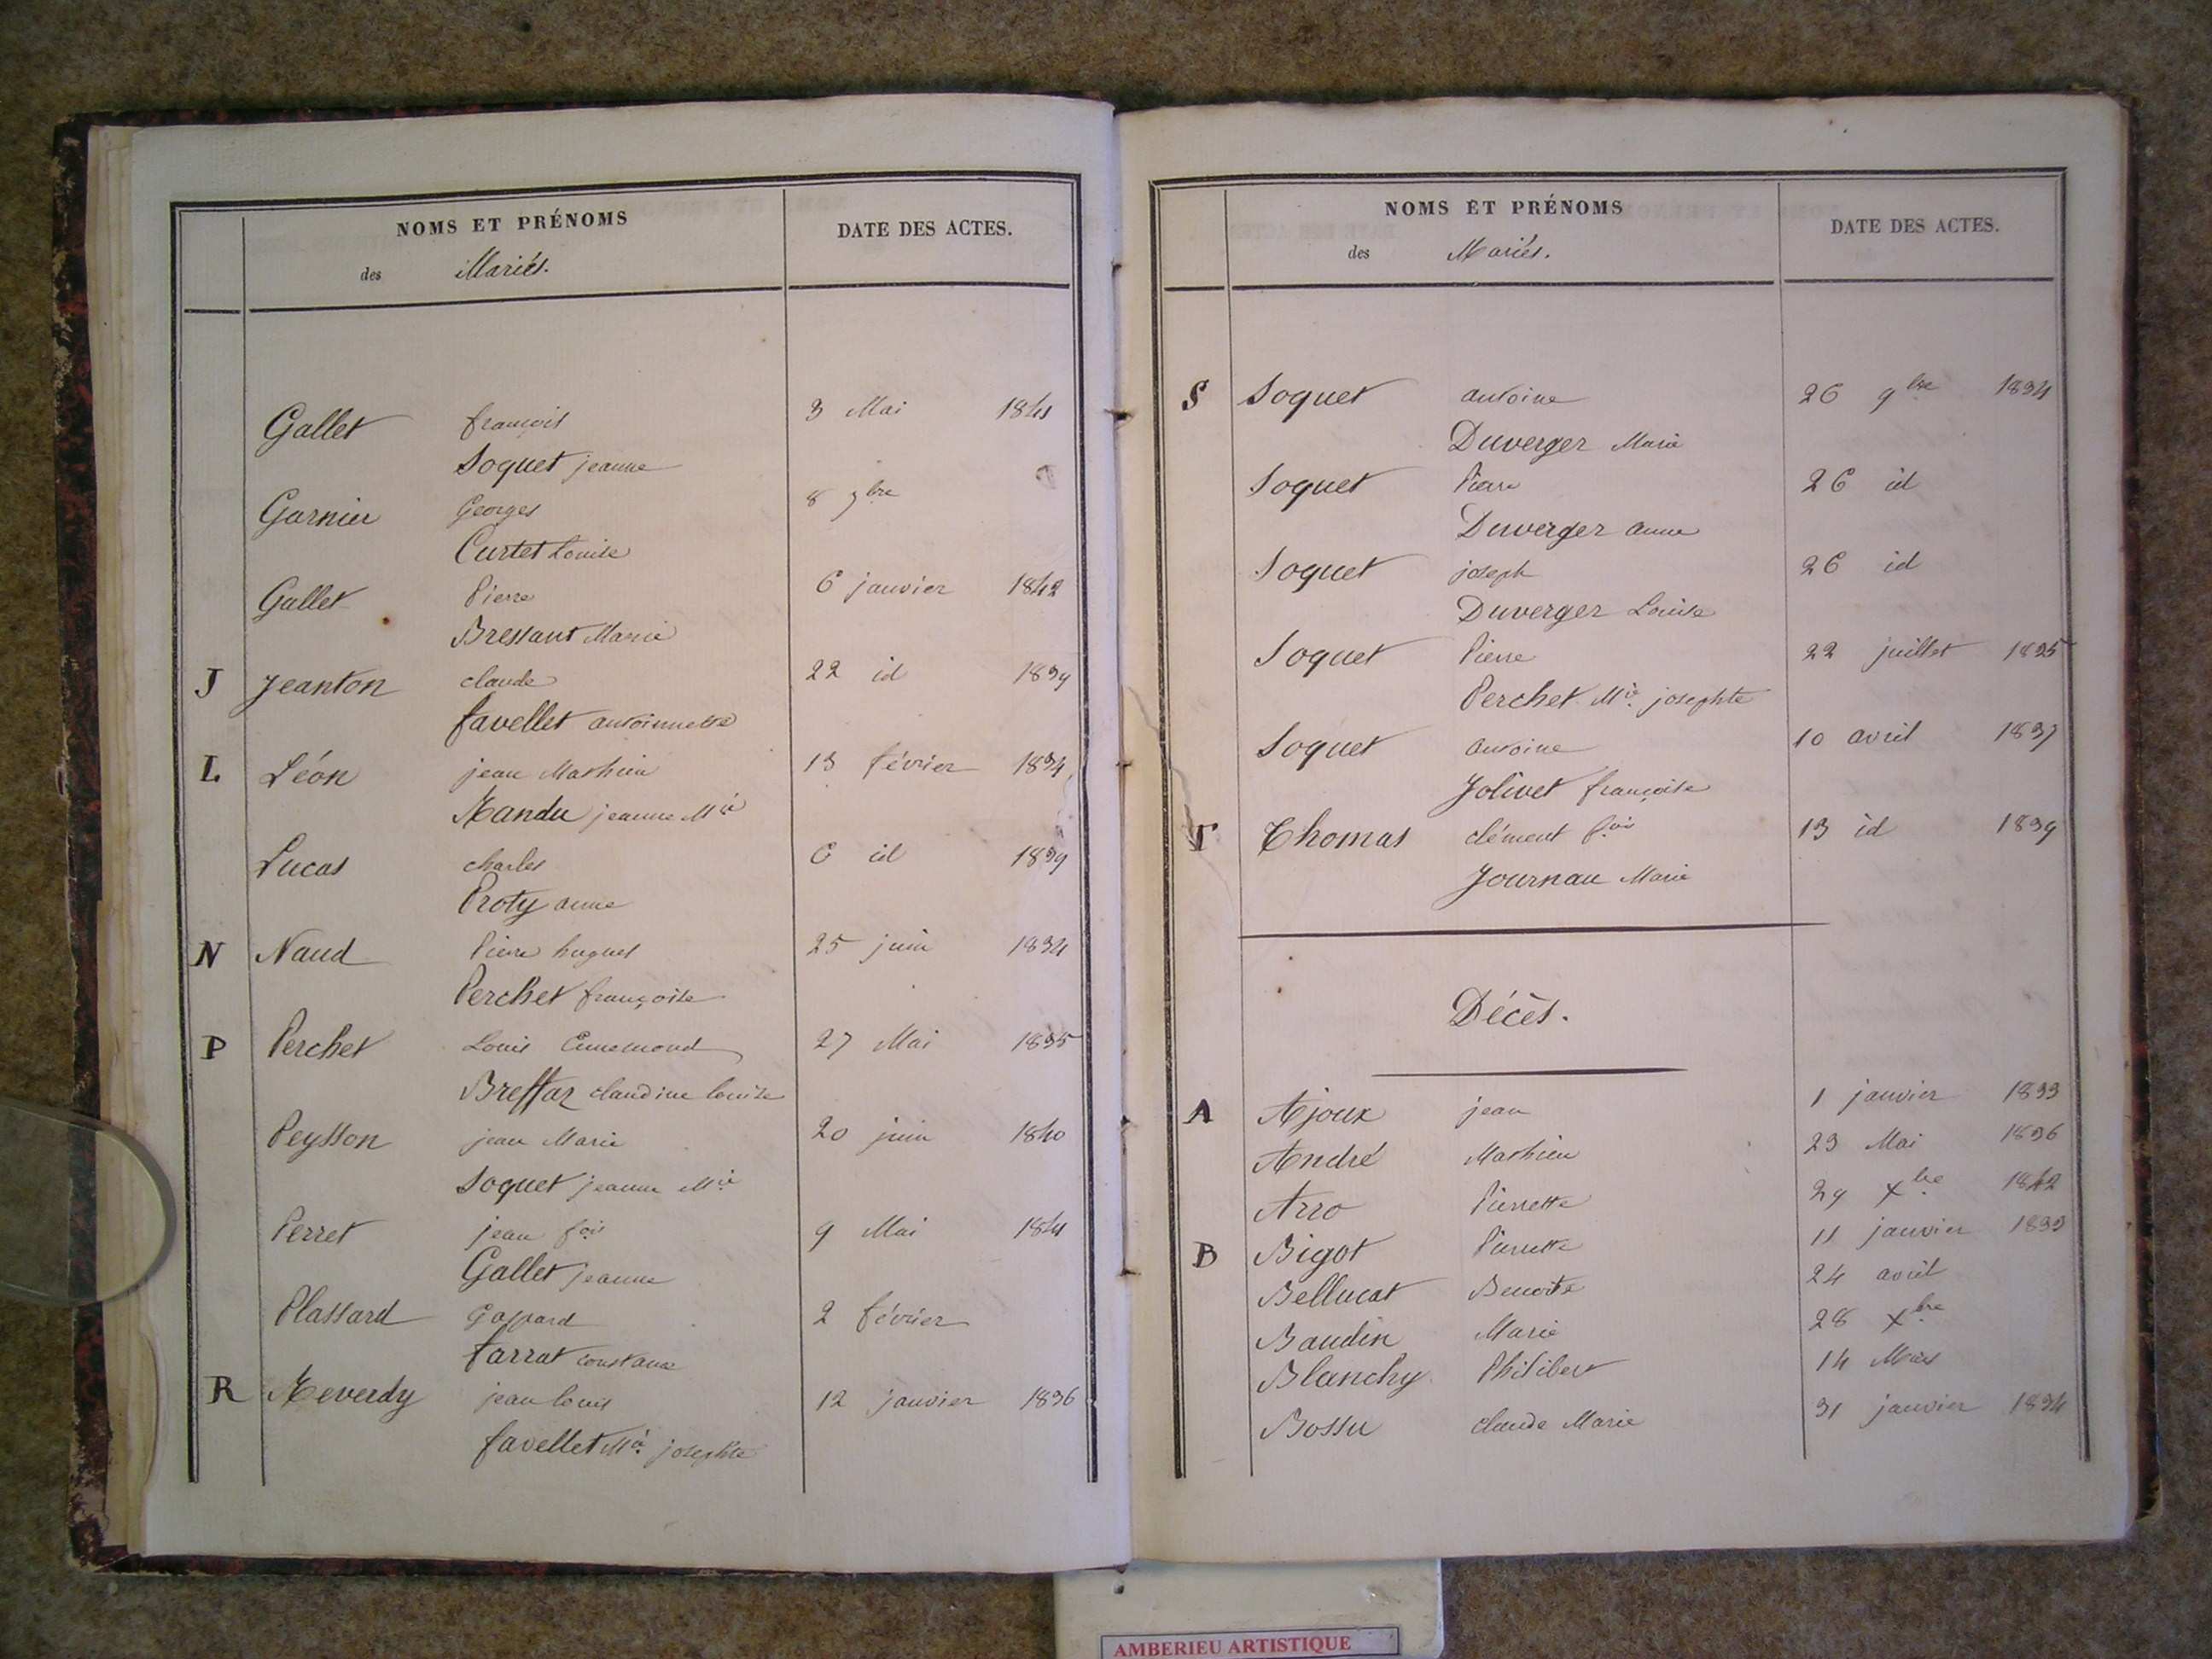 NOMS ET PRÉNOMS
des Mariés.
DATE DES ACTES.
Gallet françois 3 Mai 1841
Soquet jeanne
Garnier Georges 8 9bre
Curtet Louise
Gallet Pierre 6 janvier 1842
Bressant Marie
J Jeanton claude 22 id 1839
favellet antoinette
L Léon jean Mathieu 13 février 1834
Randu jeanne Mie
Lucas charles 6 id 1839
Proty anne
N Naud Pierre hugues 25 juin 1834
Perchet françoise
P Perchet Louis Ennemond 27 Mai 1835
Breffaz claudine louise
Peysson jean Marie 20 juin 1840
Soquet jeanne Mie
Perret jean fois 9 Mai 1841
Gallet jeanne
Plassard Gaspard 2 février
farrat constance
R Reverdy jean louis 12 janvier 1836
favellet Mie josephte
NOMS ET PRÉNOMS
des Mariés.
DATE DES ACTES.
S Soquet antoine 26 9bre 1834
Duverger Marie
Soquet Pierre 26 id
Duverger anne
Soquet joseph 26 id
Duverger Louise
Soquet Pierre 22 juillet 1835
Perchet Mie josephte
Soquet antoine 10 avril 1837
Jolivet françoise
T Thomas clément fois 13 id 1839
Journau Marie
Décès.
A Ajoux jean 1 janvier 1833
André Mathieu 23 Mai 1836
Arro Pierrette 29 Xbre 1842
B Bigot Pierrette 11 janvier 1833
Bellucat Benoite 24 avril
Baudin Marie 28 Xbre
Blanchy Philibert 14 Mars
Bossu claude Marie 31 janvier 1834
AMBERIEU ARTISTIQUE